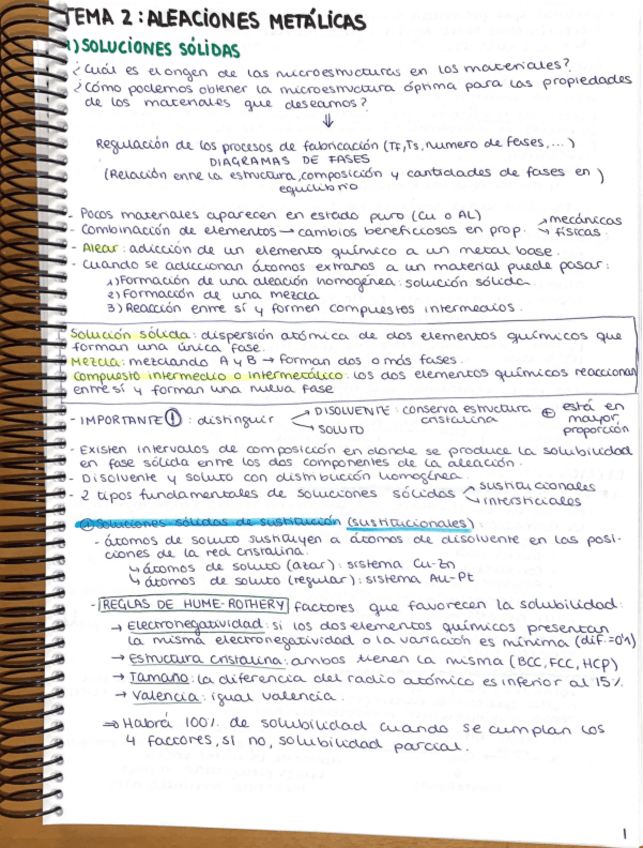 TEMA 2: ALEACIONES METÁLICAS
1) SOLUCIONES SÓLIDAS
¿Cuál es el origen de las microestructuras en los materiales?
¿Cómo podemos obtener la microestructura óptima para las propiedades
de los materiales que deseamos?
⇓
Regulación de los procesos de fabricación (TF, Ts, numero de fases, ...)
DIAGRAMAS DE FASES
(Relación entre la estructura, composición y cantidades de fases en
equilibrio)
- Pocos materiales aparecen en estado puro (Cu o AL)
- Combinación de elementos → cambios beneficiosos en prop. → mecánicas
→ físicas.
- Alear: adicción de un elemento químico a un metal base.
- Cuando se adiccionan átomos extraños a un material puede pasar:
1) Formación de una aleación homogénea: solución sólida.
2) Formación de una mezcla
3) Reacción entre sí y formen compuestos intermedios.
Solución sólida: dispersión atómica de dos elementos químicos que
forman una única fase.
Mezcla: mezclando A y B → forman dos o más fases.
Compuesto intermedio o intermetálico: los dos elementos químicos reaccionan
entre sí y forman una nueva fase
- IMPORTANTE ! : distinguir → DISOLVENTE: conserva estructura cristalina ⊕ está en mayor proporción
→ SOLUTO
- Existen intervalos de composición en donde se produce la solubilidad
en fase sólida entre los dos componentes de la aleación.
- Disolvente y soluto con distribución homogénea.
- 2 tipos fundamentales de soluciones sólidas → sustitucionales
→ intersticiales
Soluciones sólidas de sustitución (sustitucionales):
- átomos de soluto sustituyen a átomos de disolvente en las posi-
ciones de la red cristalina.
↳ átomos de soluto (azar): sistema Cu-Zn
↳ átomos de soluto (regular): sistema Au-Pt
- REGLAS DE HUME-ROTHERY factores que favorecen la solubilidad:
→ Electronegatividad: si los dos elementos químicos presentan
la misma electronegatividad o la variación es mínima (dif.=0'1)
→ Estructura cristalina: ambos tienen la misma (BCC, FCC, HCP)
→ Tamaño: la diferencia del radio atómico es inferior al 15%.
→ Valencia: igual valencia.
⇒ Habrá 100% de solubilidad cuando se cumplan los
4 factores, si no, solubilidad parcial.
1